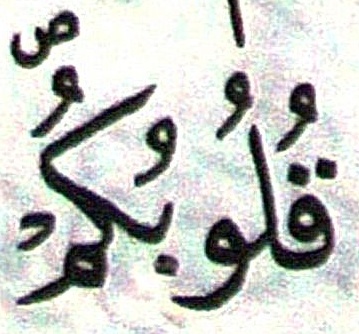 قُلُوبُكُمْ ص